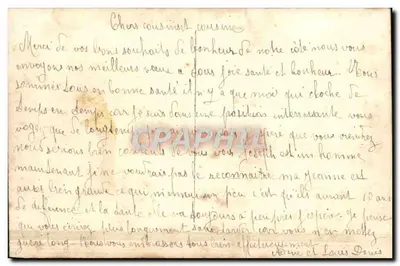 Chers cousins et cousine
Merci de vos bons souhaits de bonheur de notre côté nous vous
envoyons nos meilleurs vœux a tous joie santé et bonheur. Nous
sommes tous en bonne santé il n'y a que moi qui cloche de
temps en temps car je suis dans une position interessante vous
voyez que de
nous serions bien contents Joseph est un homme
maintenant je ne voudrais pas le reconnaitre ma Jeanne est
aussi bien grande ce qui m'ennui un peu c'est qu'ils auront 10 ans
de diference et la santé elle va toujours a peu près j'espère je pense
que vous écrirez plus longuement sans tarder car vous n'en mettez
guère long. Nous vous embrassons tous bien affectueusement
et Louis Denis
CPARHAMA